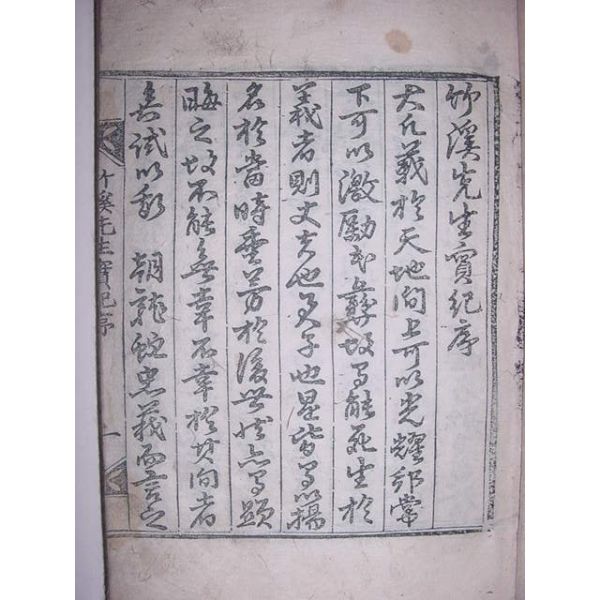 竹溪先生實紀序
夫仁義於天地間上可以光耀邦常
下可以激勵民彝故爲能死生於
義者則丈夫也男子也是皆爲以揚
名於當時垂芳於後世然亦爲顯
晦之故不能無幸不幸於其間者
矣試以我 朝龍蛇忠義而言之
竹溪先生實紀序
一